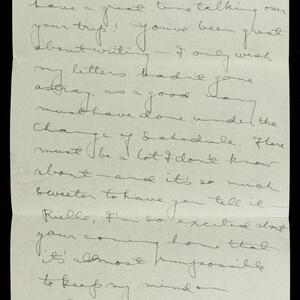 have a great time talking over
your trip! You've been great
about writing – I only wish
my letters hadn't gone
astray, as a good many
must have done under the
change of schedule. There
must be a lot I don't know
about – and it's so much
sweeter to have you tell it.
I'm so excited about
your coming home that
it's almost impossible
to keep my mind on